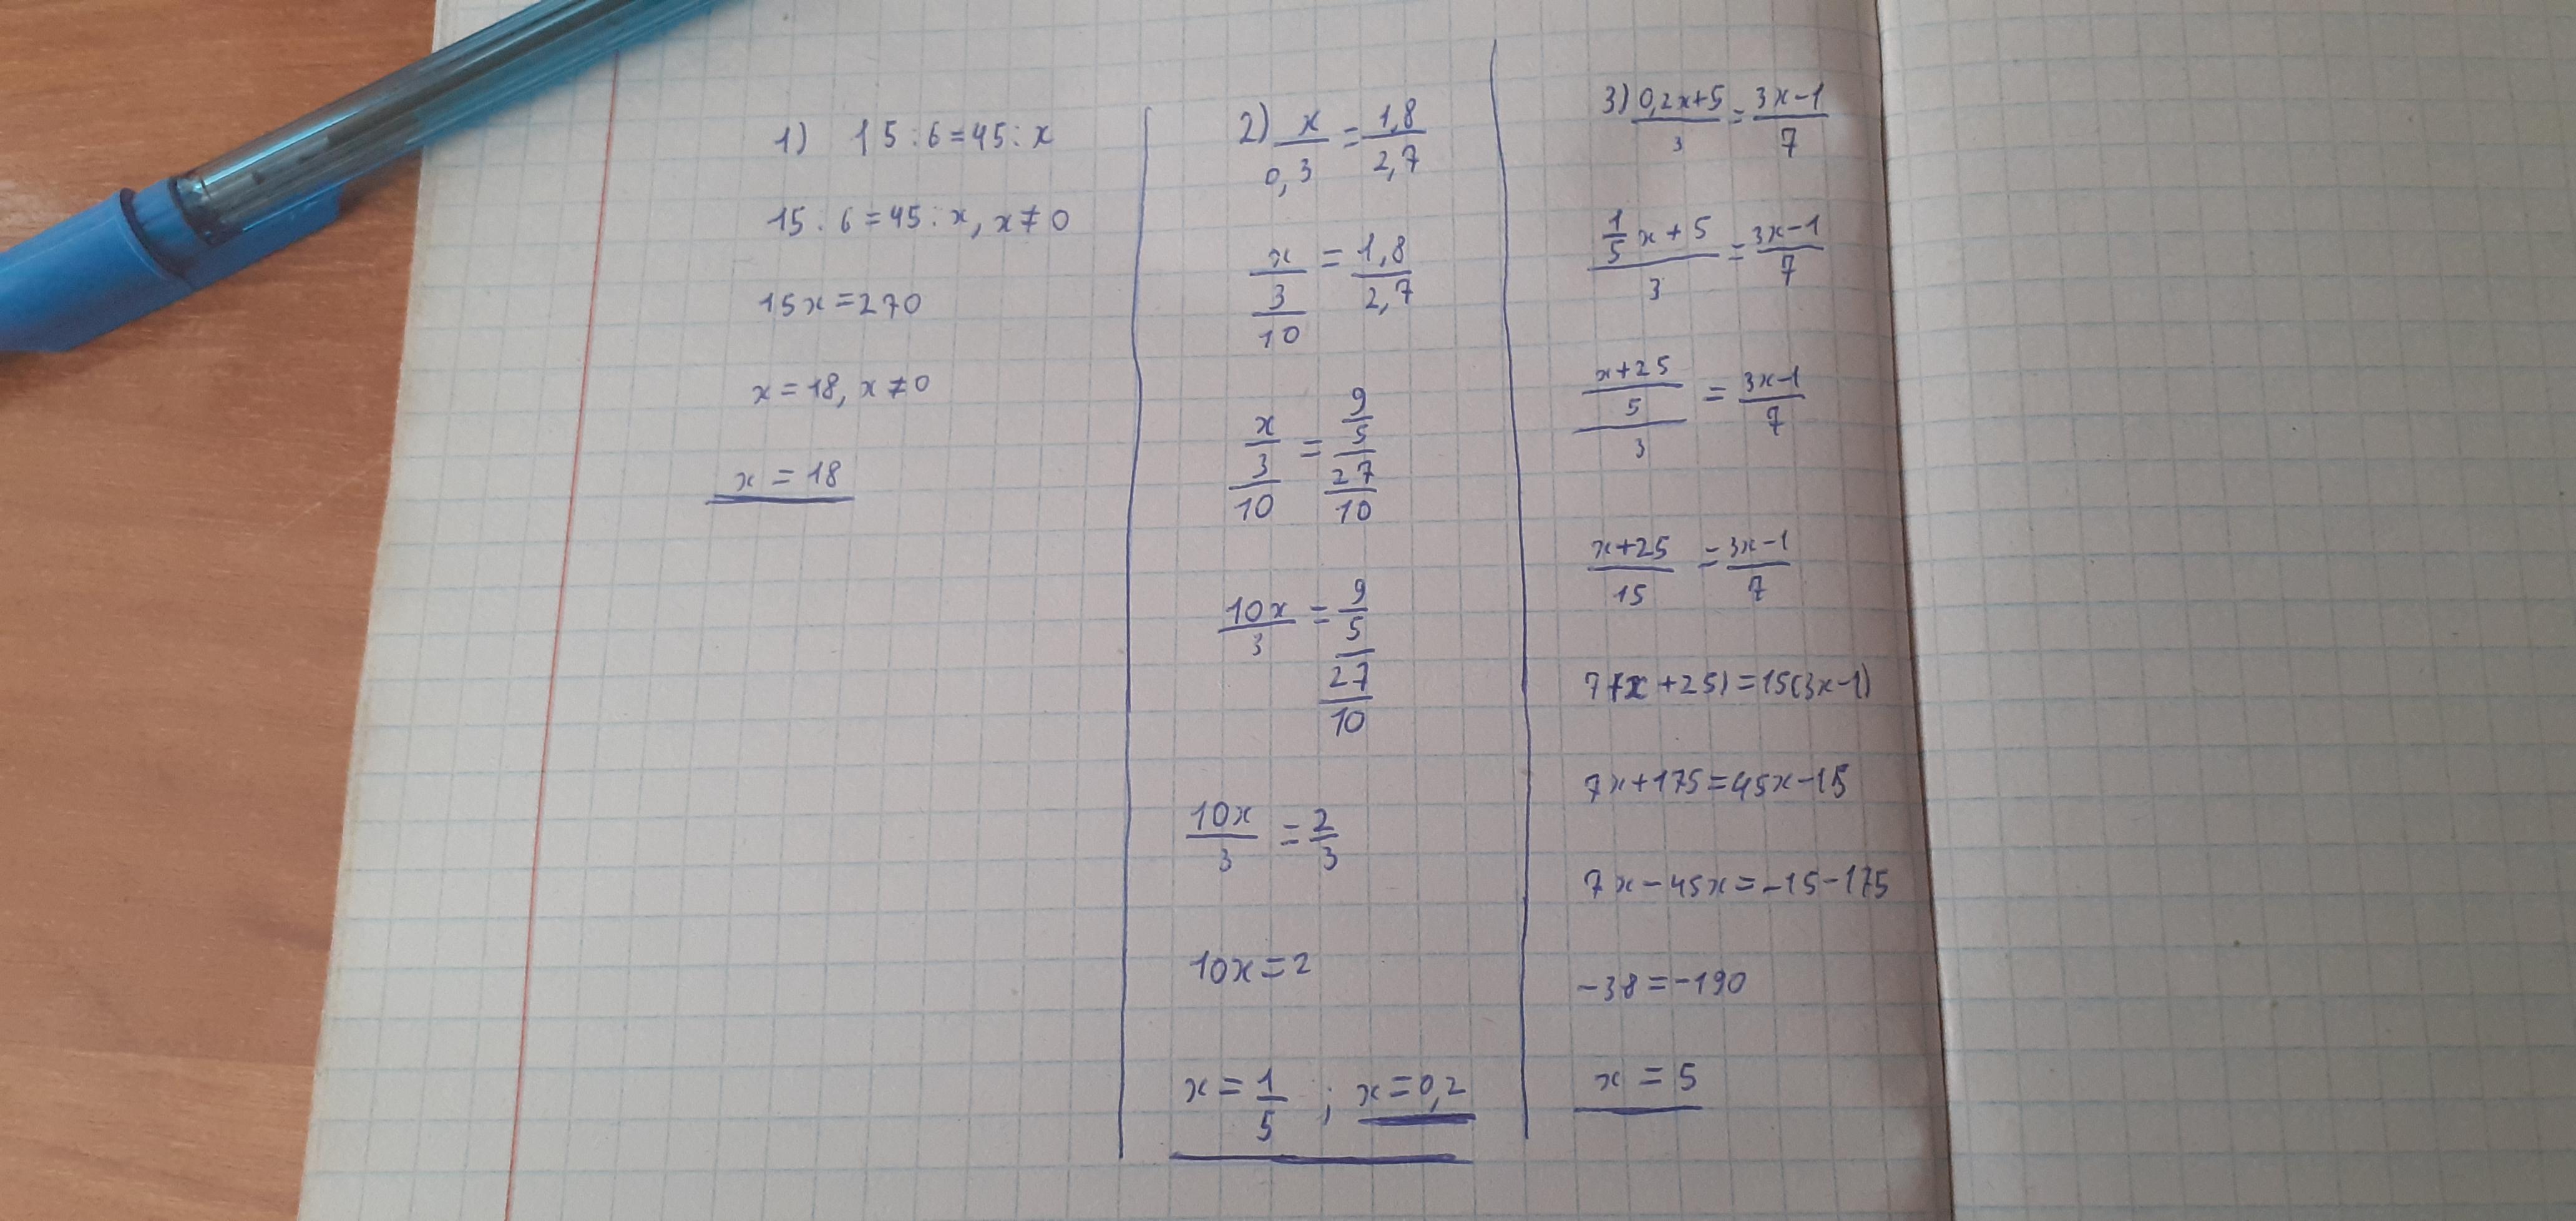 1) 15:6=45:x
15:6=45:x, x≠0
15x=270
x=18, x≠0
x=18
2) x/0,3=1,8/2,7
x/(3/10)=1,8/2,7
x/(3/10)=(9/5)/(27/10)
10x/3=(9/5)/(27/10)
10x/3=2/3
10x=2
x=1/5; x=0,2
3) (0,2x+5)/3=(3x-1)/7
(1/5x+5)/3=(3x-1)/7
((x+25)/5)/3=(3x-1)/7
(x+25)/15=(3x-1)/7
7(x+25)=15(3x-1)
7x+175=45x-15
7x-45x=-15-175
-38=-190
x=5